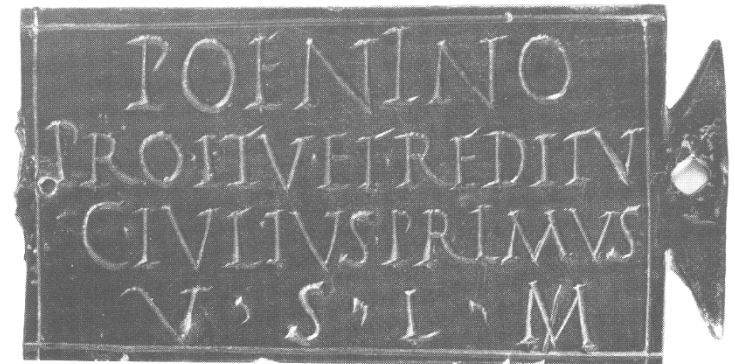 POENINO
PRO·ITV·ET·REDITV
C·IVLIVS·PRIMVS
V·S·L·M